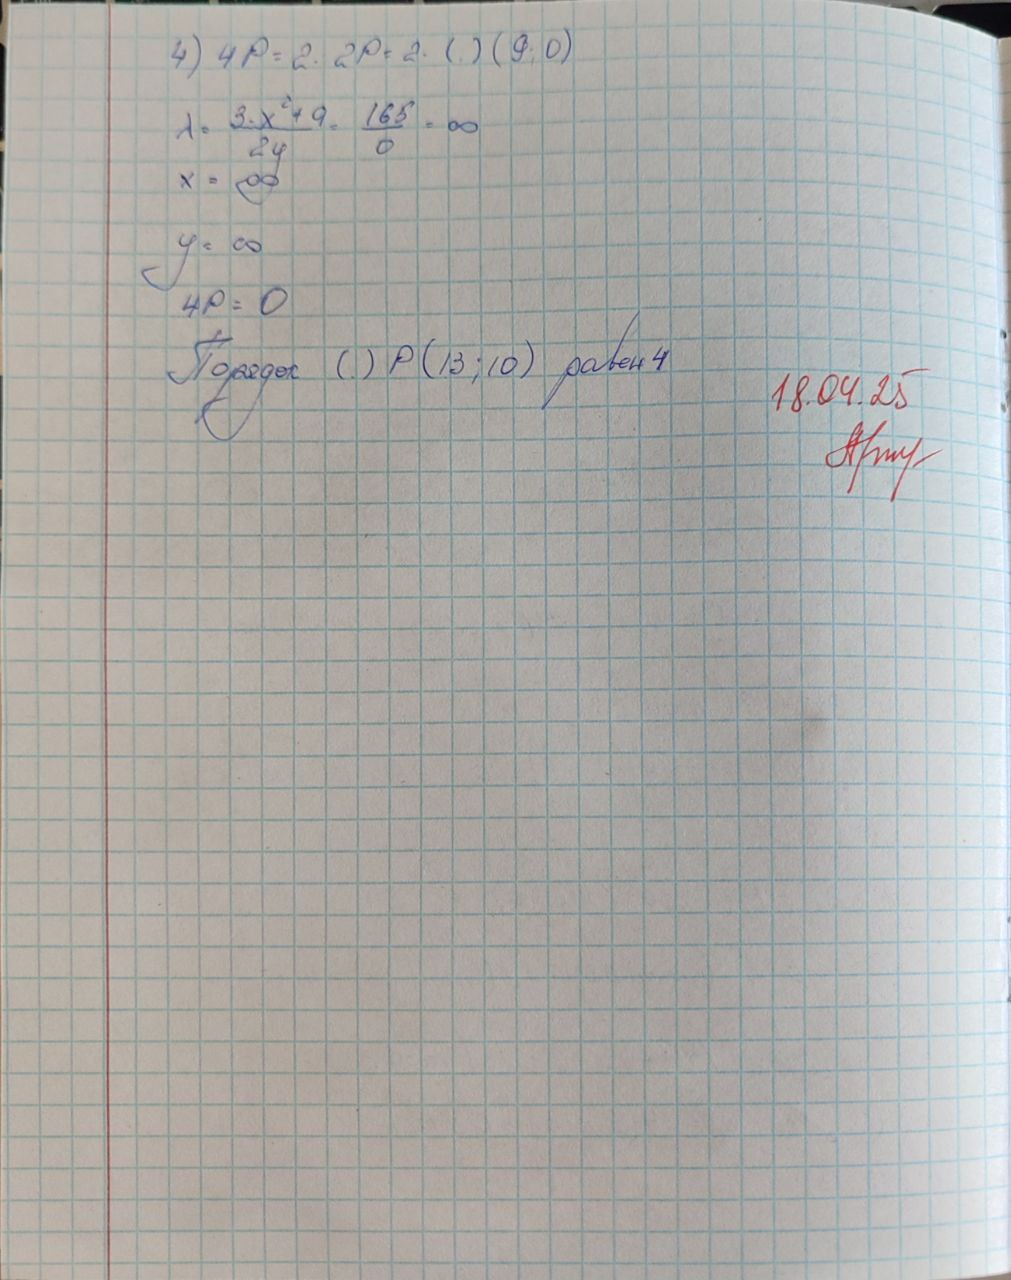 4) 4P = 2 · 2P = 2 · (.) (9; 0)
λ = (3·x² + a)/(2y) = 165/0 = ∞
x = ∞
y = ∞
4P = O
Порядок (.) P (13; 10) равен 4
18.04.25